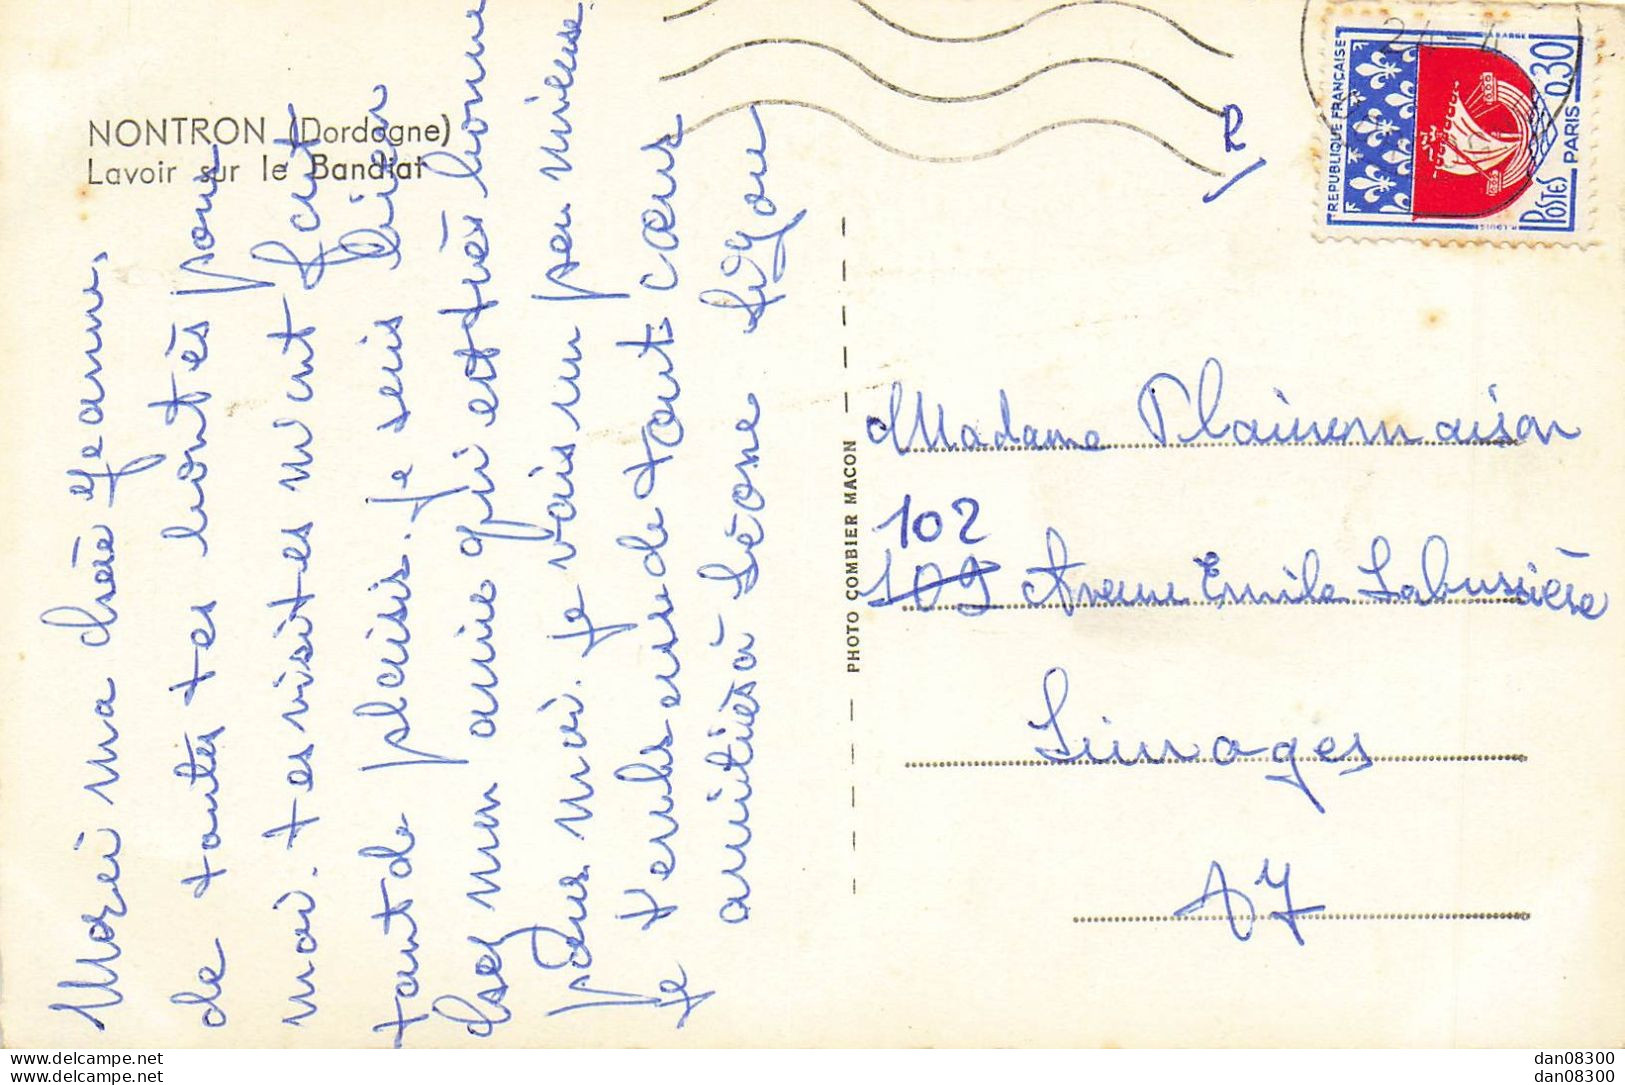 NONTRON (Dordogne)
Lavoir sur le Bandiat
Merci ma chère Jeanne,
de toutes tes bontés pour
moi. tes visites m'ont fait
tant de plaisir. Je suis bien
chez mon amie qui est très bonne
pour moi. Je vais un peu mieux.
Je t'embrasse de tout cœur
amitiés à Léone
PHOTO COMBIER MACON
R
24-4
REPUBLIQUE FRANÇAISE
0,30
POSTES PARIS
Madame Plainemaison
102
109 Avenue Emile Labussière
Limoges
87
dan08300
dan08300
dan08300
dan08300